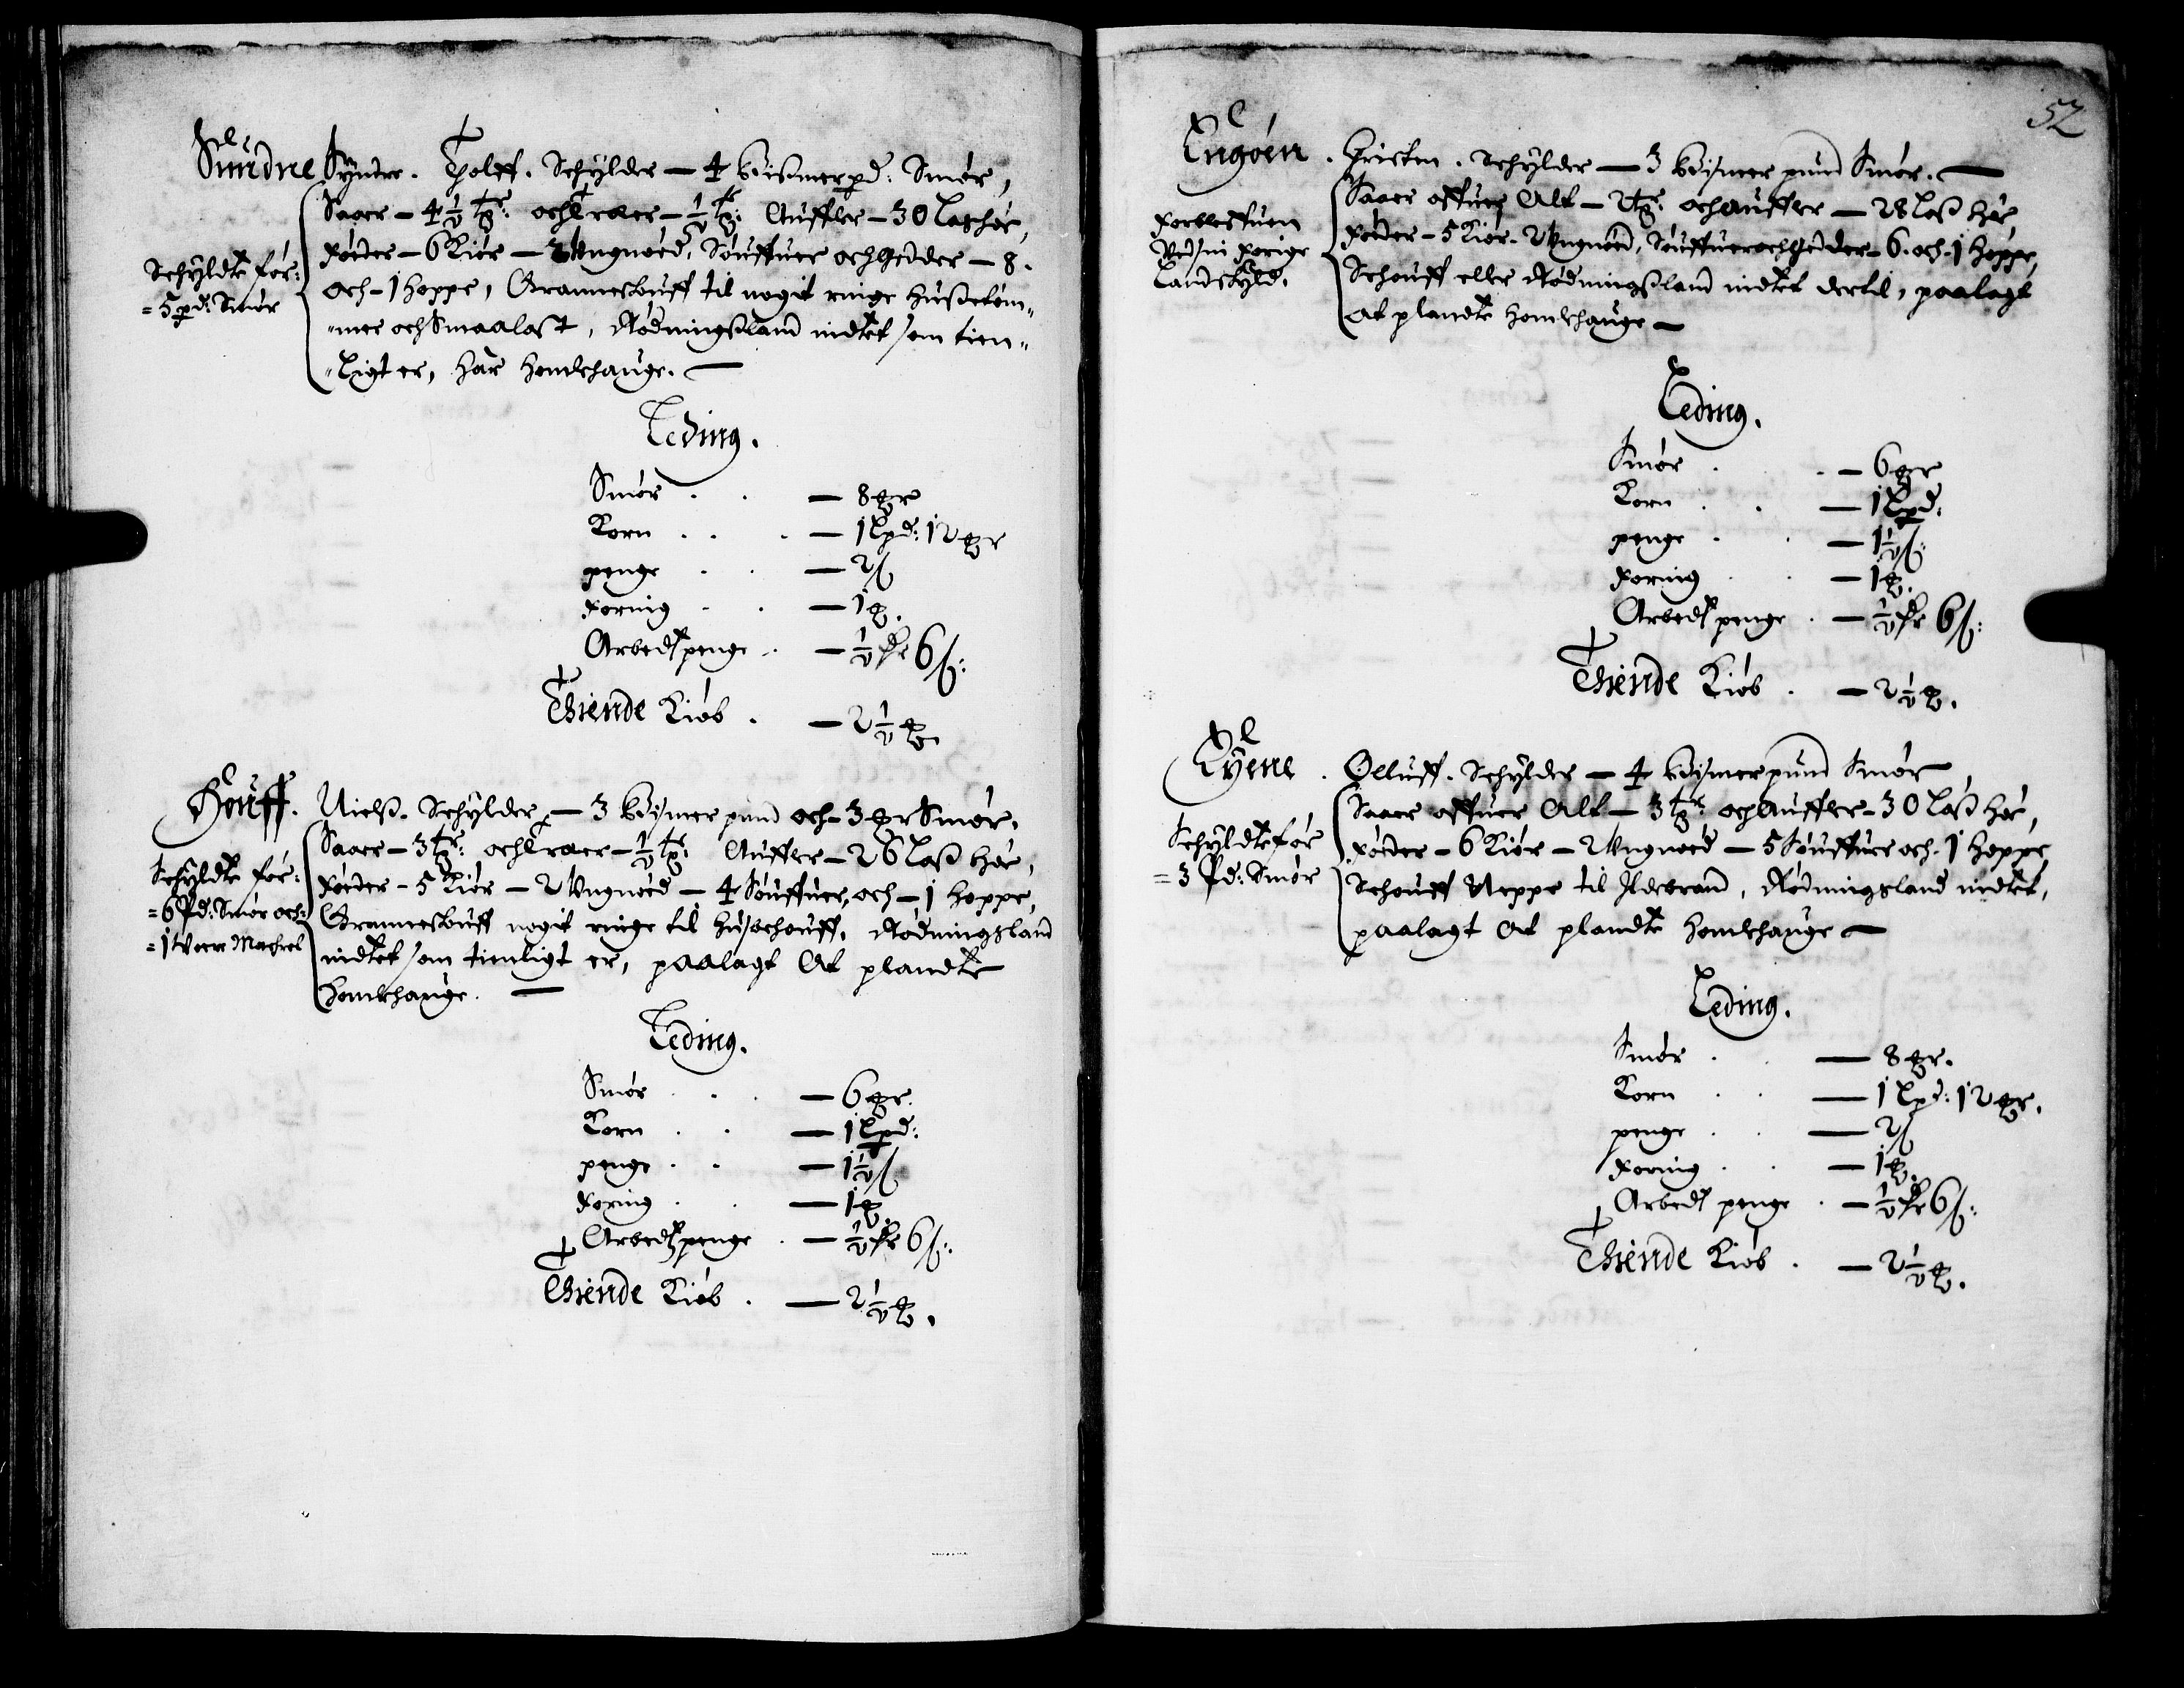 Sundne Syndre. Tholff. Schylder — 4 Bismerpd: Smør,
Saaer — 4½ tr: och Traer — ½ tr: Auffler — 30 Lashøe,
føeder — 6 Kiør — 3 Ungnød, Souffuer och Geeder — 8.
och — 1 Hoppe, Granneskouff til nogit ringe Hussetøm„
„mer och Smaalast, Rødningsland indtet som tien„
„ligt er, har Homlehauge. —
Schyldte før:
= 5 pd: Smør
Leding.
Smør . . — 8 mr
Korn . . — 1 Lpd: 12 mr
penge . . — 2 ß
foring . . — 1 mk.
Arbedtzpenge . — ½ dr 6 ß:
Thiende Kiøb . — 2½ mk.
Houff. Nielß. Schylder, — 3 Bismer pund och — 3 mr Smør.
Saaer — 3 tr: och Traer — ½ tr: Auffler — 26 Laß Høe,
føeder — 5 Kiør — 2 Ungnød — 4 Souffuer, och — 1 Hoppe,
Granneskouff nogit ringe til Husschouff, Rødningsland
indtet som tienligt er, paalagt At plandte
Homlehauge. —
Schyldte før:
= 6 Pd: Smør och:
= 1 Woer Machrel
Leding.
Smør . . — 6 mr.
Korn . . — 1 Lpd:
penge . . — 1½ ß
foring . . — 1 mk.
Arbedtzpenge . — ½ dr 6 ß:
Thiende Kiøb . — 2½ mk.
52
Engøen . Christen . Schylder — 3 Bismer pund Smør. —
Saaer offuer Alt — 2 tr: och auffler — 28 Laß Høe,
føeder — 5 Kiør — 2 Ungnød, Souffuer och Geeder — 6. och — 1 Hoppe,
Schouff eller Rødningsland indtet dertil, paalagt
At plandte Homlehauge —
forbleffuen
Ved sin forige
Landskyld.
Leding.
Smør . . — 6 mr
Korn . . — 1 Lpd:
penge . . — 1½ ß:
foring . . — 1 mk.
Arbedtz penge . — ½ dr 6 ß:
Thiende Kiøb . — 2½ mk.
Eyene . Olluff. Schylder — 4 Bismerpund Smør,
Saaer offuer Alt — 3 tr: och Auffler — 30 Laß Høe,
føeder — 6 Kiør — 2 Ungnød — 5 Souffuer och — 1 Hoppe
Schouff Neppe til Ildebrand, Rødningsland indtet,
paalagt At plandte Homlehauge —
Schyldte før
= 3 Pd: Smør
Leding.
Smør . . — 8 mr.
Korn . . — 1 Lpd: 12 mr.
penge . . — 2 ß
foring . . — 1 mk.
Arbedtz penge . — ½ dr 6 ß:
Thiende Kiøb . — 2½ mk.